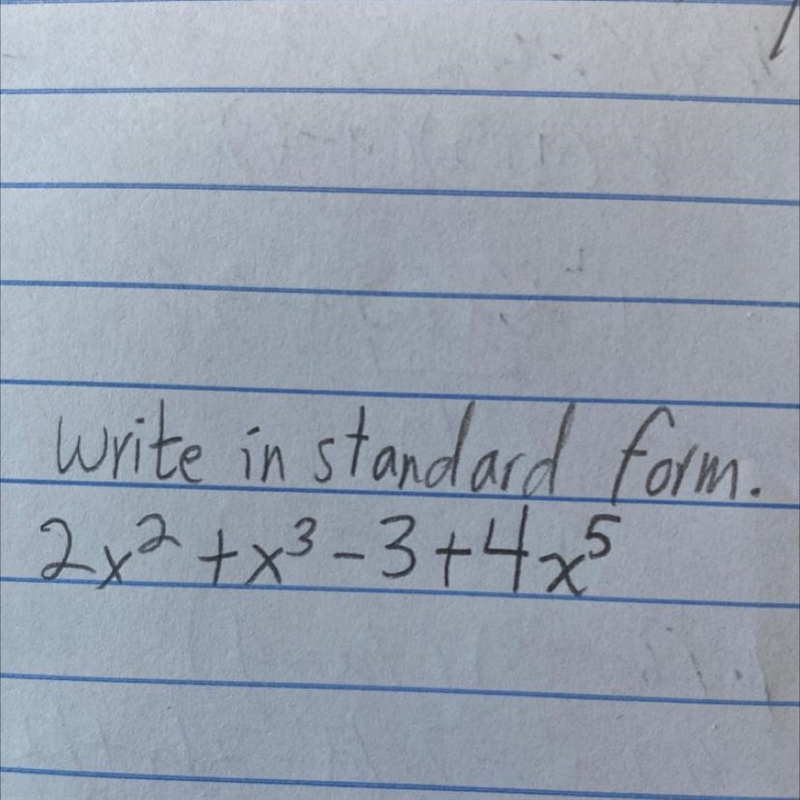 Write in standard form.
2x² + x³ - 3 + 4x⁵